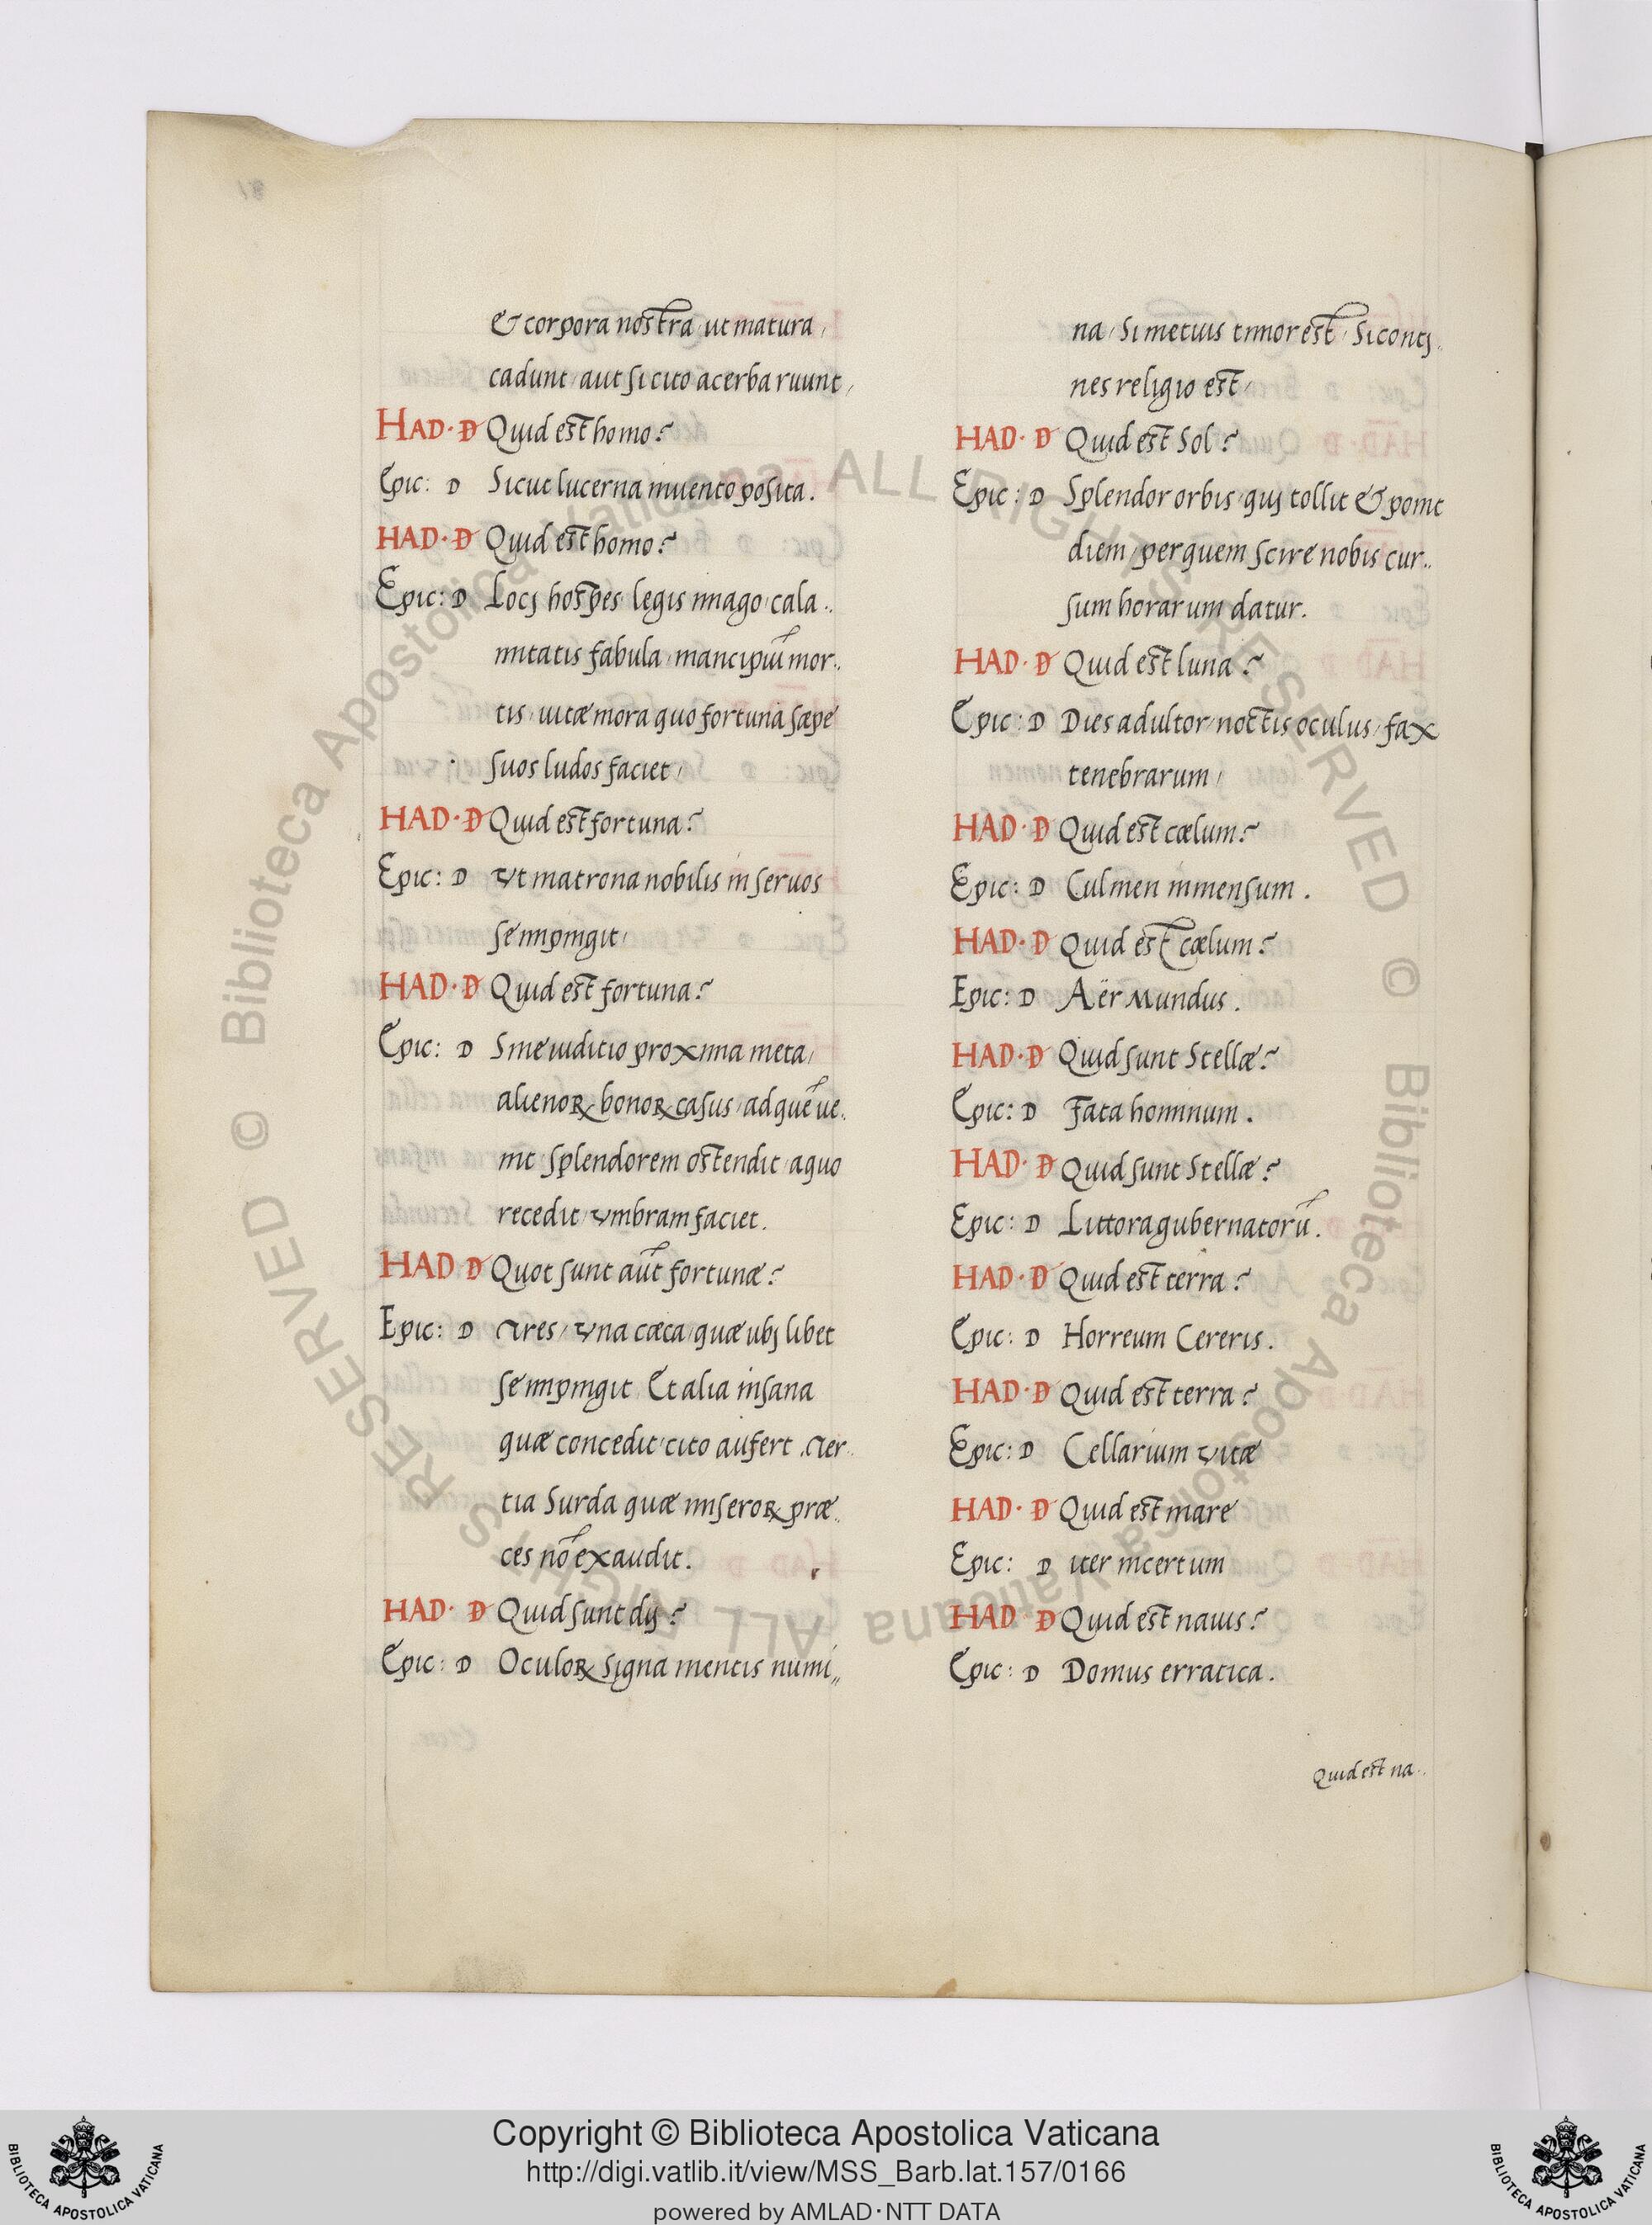 & corpora nostra, ut matura,
cadunt, aut si cito acerba ruunt,
HAD. D Quid est homo?
Epic: D Sicut lucerna inuento posita.
HAD. D Quid est homo?
Epic: D Locj hospes, legis imago, cala..
mitatis fabula, mancipiũ mor..
tis, uitæ mora quo fortuna sæpe
suos ludos faciet,
HAD. D Quid est fortuna?
Epic: D Vt matrona nobilis in seruos
se impingit,
HAD. D Quid est fortuna?
Epic: D Sine iuditio proxima meta,
alienoꝝ bonoꝝ casus, ad quẽ ue..
nit splendorem ostendit, a quo
recedit, vmbram faciet.
HAD D Quot sunt aũt fortunæ?
Epic: D Tres, vna cæca, quæ ubj libet
se impingit, Et alia insana
quæ concedit, cito aufert. Ter..
tia Surda quæ miseroꝝ præ..
ces nõ exaudit.
HAD. D Quid sunt dij?
Epic: D Oculoꝝ signa mentis numi,,
na, Si metuis timor est, Si contj..
nes religio est,
HAD. D Quid est Sol?
Epic: D Splendor orbis, quj tollit & ponit
diem, per quem scire nobis cur..
sum horarum datur.
HAD. D Quid est luna?
Epic: D Dies adultor, noctis oculus, fax
tenebrarum,
HAD. D Quid est cælum?
Epic: D Culmen inmensum.
HAD. D Quid est cælum?
Epic: D Aër Mundus.
HAD. D Quid sunt Stellæ?
Epic: D Fata hominum.
HAD. D Quid sunt Stellæ?
Epic: D Littora gubernatorũ.
HAD. D Quid est terra?
Epic: D Horreum Cereris.
HAD. D Quid est terra?
Epic: D Cellarium vitæ
HAD. D Quid est mare
Epic: D iter incertum
HAD D Quid est nauis?
Epic: D Domus erratica.
Quid est na..
Copyright © Biblioteca Apostolica Vaticana
http://digi.vatlib.it/view/MSS_Barb.lat.157/0166
powered by AMLAD·NTT DATA
BIBLIOTECA APOSTOLICA VATICANA
BIBLIOTECA APOSTOLICA VATICANA
© Biblioteca Apostolica Vaticana ALL RIGHTS RESERVED
© Biblioteca Apostolica Vaticana ALL RIGHTS RESERVED